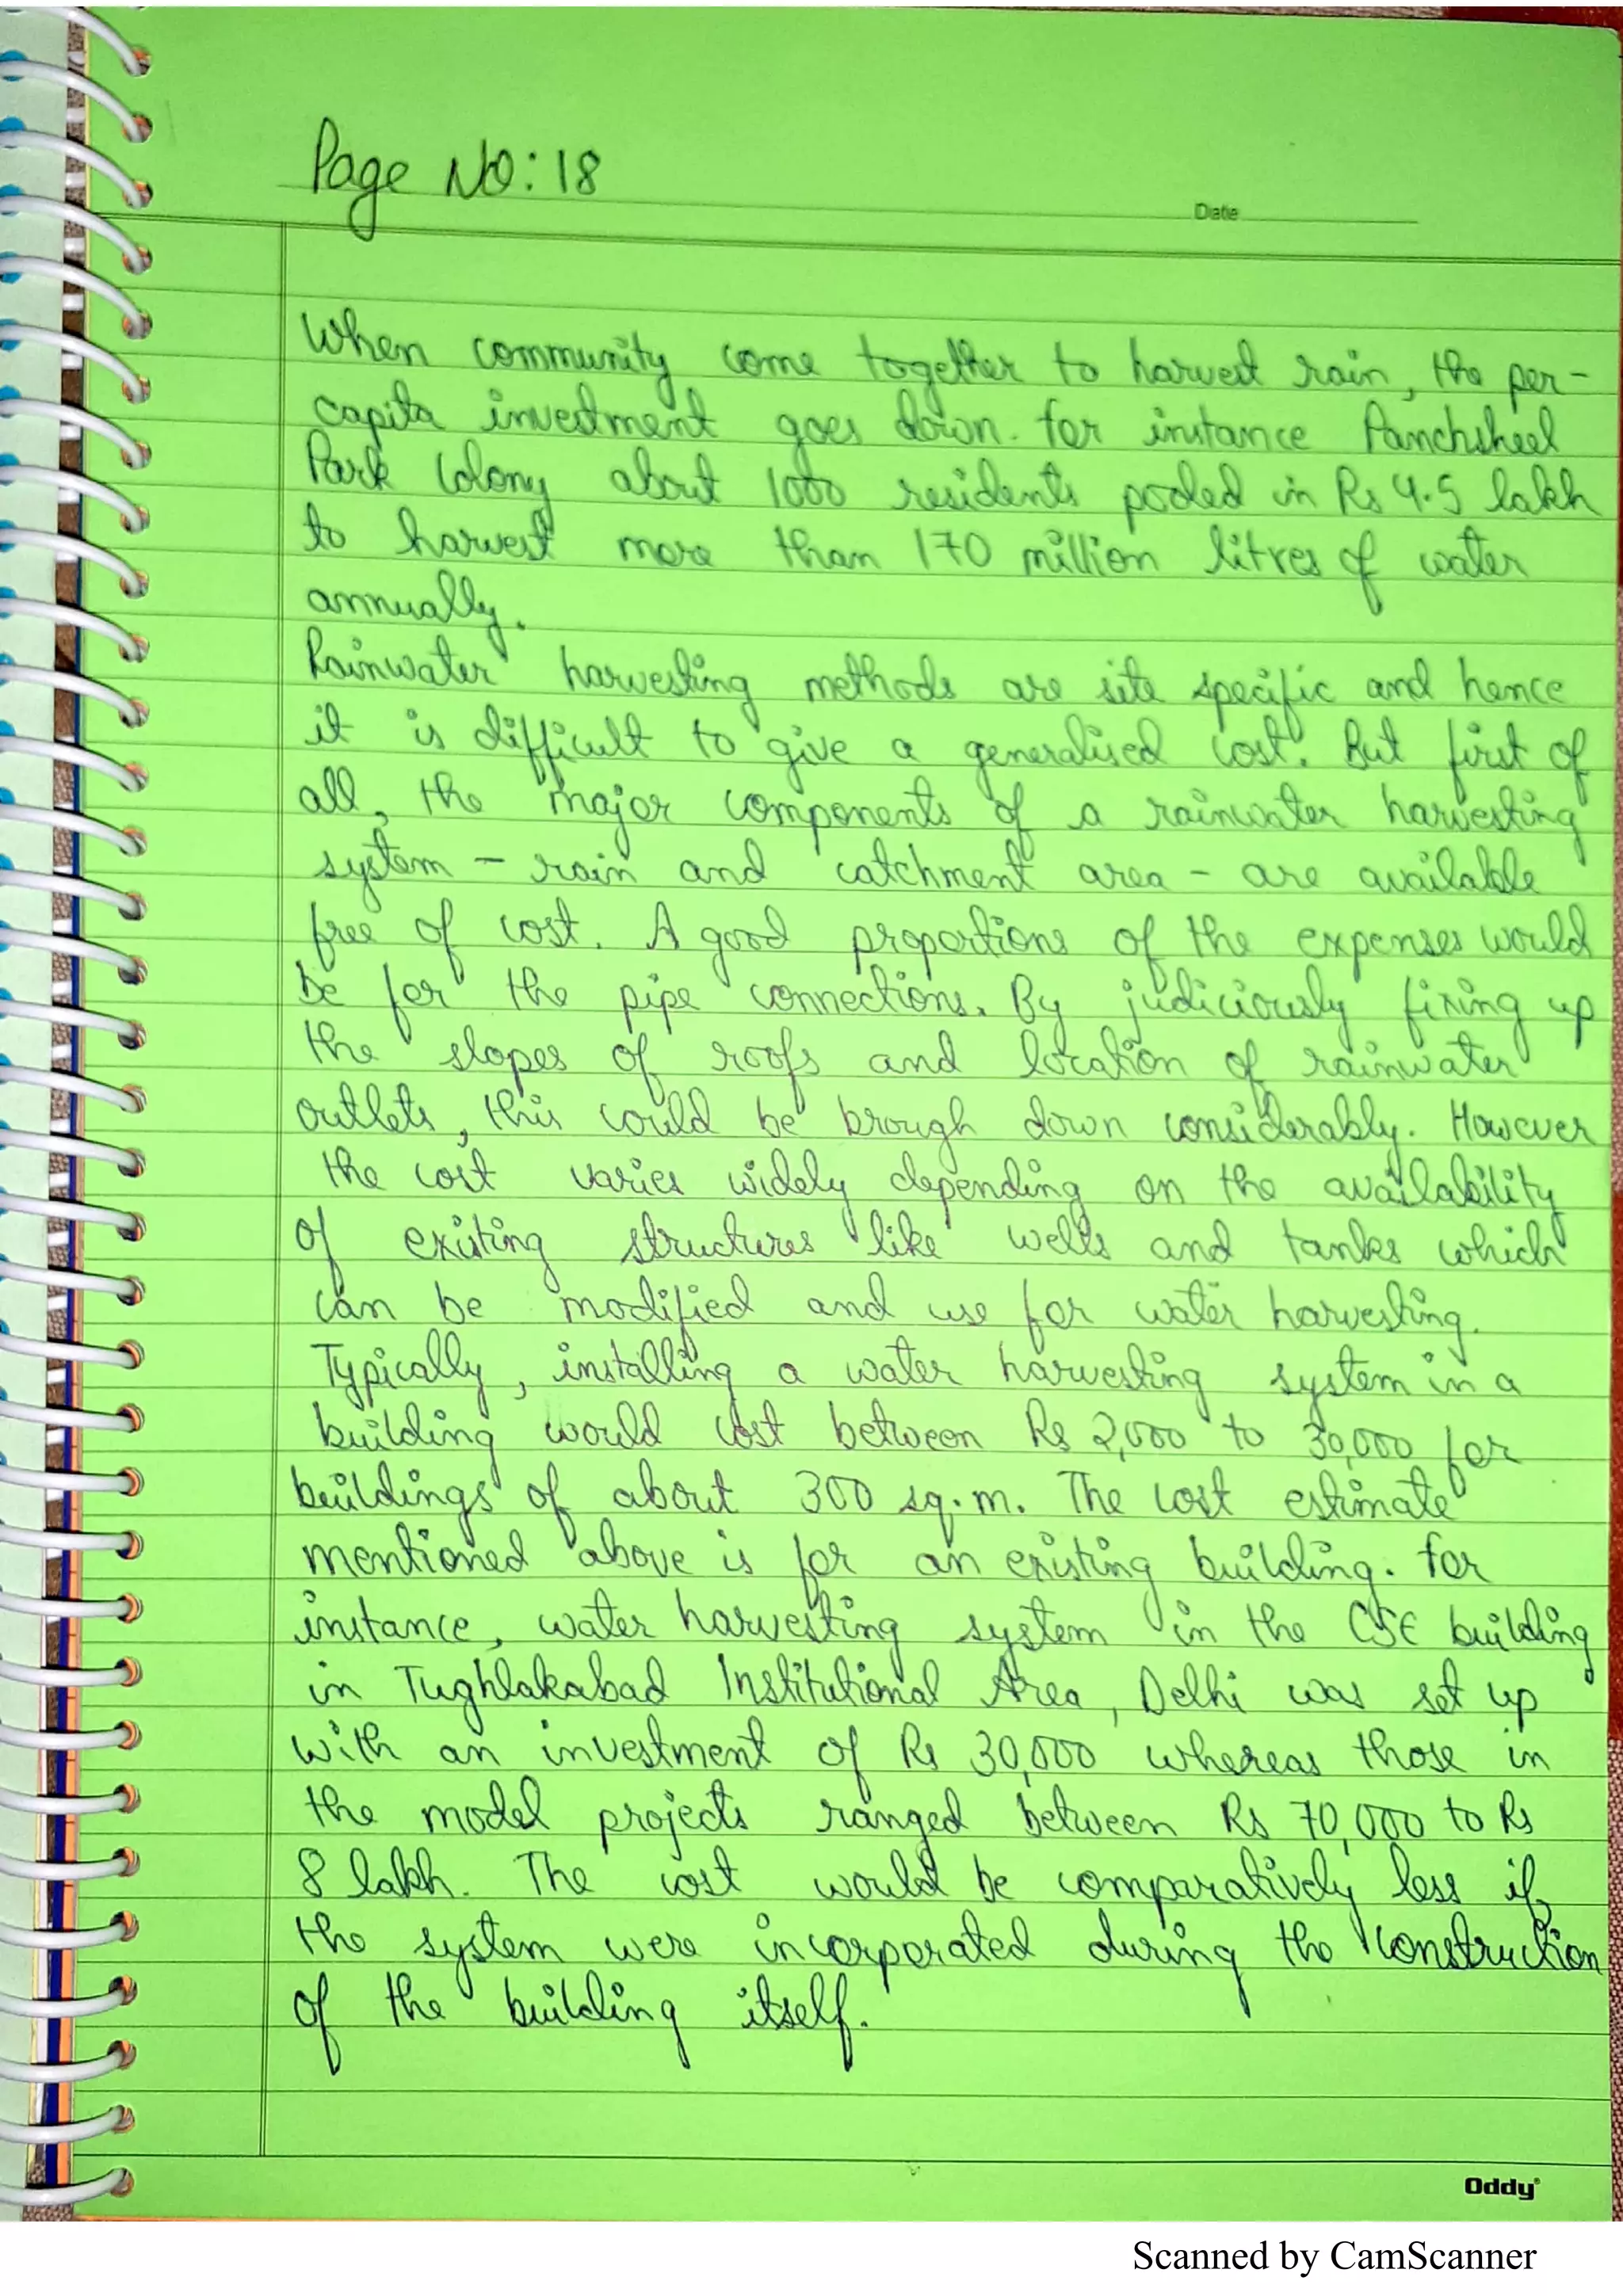 Page No: 18
Date
When community come together to harvest rain, the per-
capita investment goes down. for instance Panchsheel
Park Colony about 1000 residents pooled in Rs 4.5 lakh
to harvest more than 170 million litres of water
annually.
Rainwater harvesting methods are site specific and hence
it is difficult to give a generalised cost. But first of
all, the major components of a rainwater harvesting
system - rain and catchment area - are available
free of cost. A good proportions of the expenses would
be for the pipe connections. By judiciously fixing up
the slopes of roofs and location of rainwater
outlets, this could be brough down considerably. However
the cost varies widely depending on the availability
of existing structures like wells and tanks which
can be modified and use for water harvesting.
Typically, installing a water harvesting system in a
building would cost between Rs 2,000 to 30,000 for
buildings of about 300 sq.m. The cost estimate
mentioned above is for an existing building. for
instance, water harvesting system in the CSE building
in Tughlakabad Institutional Area, Delhi was set up
with an investment of Rs 30,000 whereas those in
the model projects ranged between Rs 70,000 to Rs
8 lakh. The cost would be comparatively less if
the system were incorporated during the construction
of the building itself.
Oddy
Scanned by CamScanner